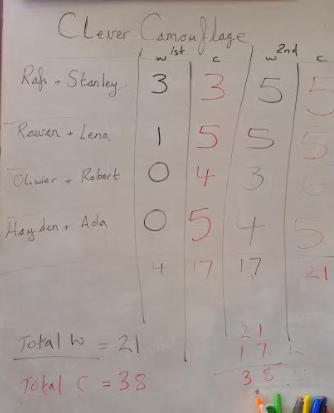 Clever Camouflage
1st 2nd
w c w c
Rafs + Stanley 3 3 5 5
Rowan + Lena 1 5 5 5
Olivier + Robert 0 4 3
Hayden + Ada 0 5 4 5
4 17 17 21
Total W = 21
21
17
Total C = 38
38